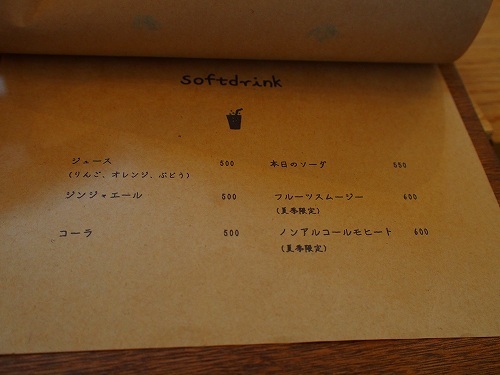 softdrink
ジュース 500
(りんご、オレンジ、ぶどう)
ジンジャエール 500
コーラ 500
本日のソーダ 550
フルーツスムージー 600
(夏季限定)
ノンアルコールモヒート 600
(夏季限定)